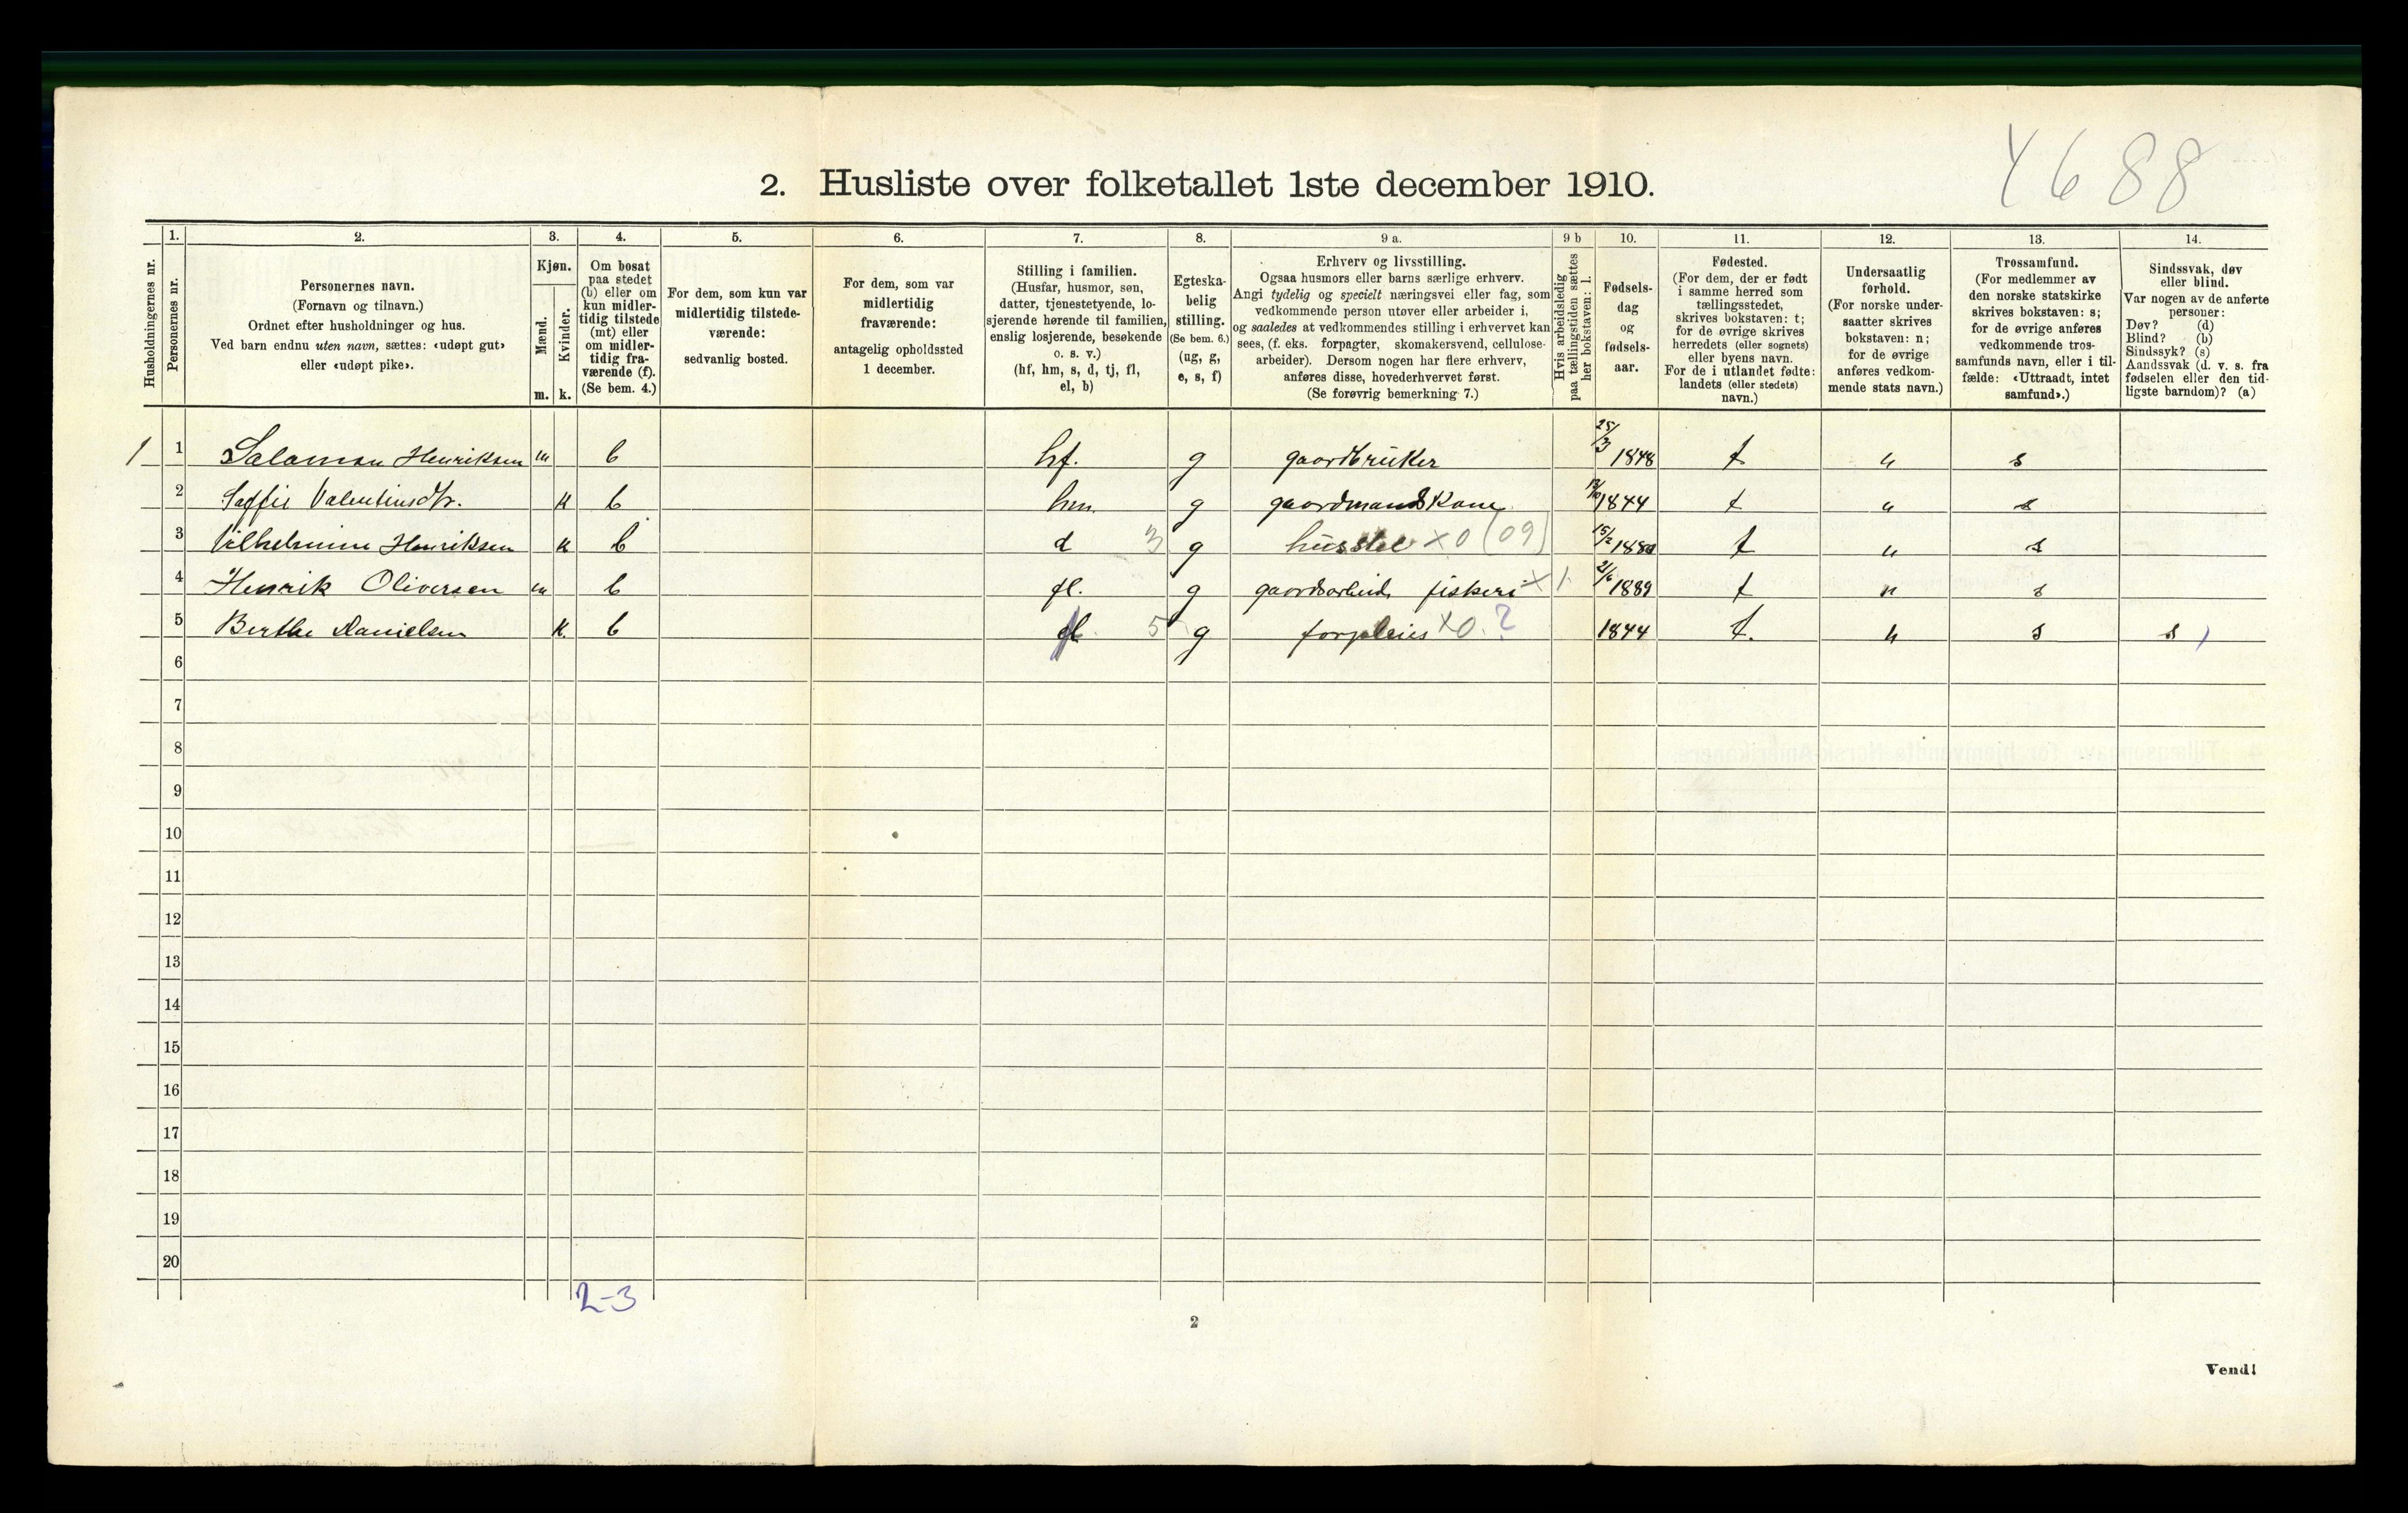 4688
2. Husliste over folketallet 1ste december 1910.
Husholdningernes nr.
1.
Personernes nr.
2.
Personernes navn.
(Fornavn og tilnavn.)
Ordnet efter husholdninger og hus.
Ved barn endnu uten navn, sættes: «udøpt gut»
eller «udøpt pike».
3.
Kjøn.
Mænd.
Kvinder.
m. k.
4.
Om bosat
paa stedet
(b) eller om
kun midler-
tidig tilstede
(mt) eller
om midler-
tidig fra-
værende (f).
(Se bem. 4.)
5.
For dem, som kun var
midlertidig tilstede-
værende:
sedvanlig bosted.
6.
For dem, som var
midlertidig
fraværende:
antagelig opholdssted
1 december.
7.
Stilling i familien.
(Husfar, husmor, søn,
datter, tjenestetyende, lo-
sjerende hørende til familien,
enslig losjerende, besøkende
o. s. v.)
(hf, hm, s, d, tj, fl,
el, b)
8.
Egteska-
belig
stilling.
(Se bem. 6.)
(ug, g,
e, s, f)
9 a.
Erhverv og livsstilling.
Ogsaa husmors eller barns særlige erhverv.
Angi tydelig og specielt næringsvei eller fag, som
vedkommende person utøver eller arbeider i,
og saaledes at vedkommendes stilling i erhvervet kan
sees, (f. eks. forpagter, skomakersvend, cellulose-
arbeider). Dersom nogen har flere erhverv,
anføres disse, hovederhvervet først.
(Se forøvrig bemerkning 7.)
9 b
Hvis arbeidsledig
paa tællingstiden sættes
her bokstaven: l.
10.
Fødsels-
dag
og
fødsels-
aar.
11.
Fødested.
(For dem, der er født
i samme herred som
tællingsstedet,
skrives bokstaven: t;
for de øvrige skrives
herredets (eller sognets)
eller byens navn.
For de i utlandet fødte:
landets (eller stedets)
navn.)
12.
Undersaatlig
forhold.
(For norske under-
saatter skrives
bokstaven: n;
for de øvrige
anføres vedkom-
mende stats navn.)
13.
Trossamfund.
(For medlemmer av
den norske statskirke
skrives bokstaven: s;
for de øvrige anføres
vedkommende tros-
samfunds navn, eller i til-
fælde: «Uttraadt, intet
samfund».)
14.
Sindssvak, døv
eller blind.
Var nogen av de anførte
personer:
Døv? (d)
Blind? (b)
Sindssyk? (s)
Aandssvak (d. v. s. fra
fødselen eller den tid-
ligste barndom)? (a)
1 1 Salamon Henriksen m b hf. g gaardbruker 25/3 1848 t n s
2 Saffie Valentinsdtr. k b hm. g gaardmandskone 1844 t n s
3 Vilhelmine Henriksen k b d 3 g husstel x0 (09) 15/2 t n s
4 Henrik Oliversen m b fl. g gaardsarbeide fiskeri x 1. 21/6 1889 t n s
5 Berthe Danielsen k b fl. 5 g forpleies x0.? 1844 t. n s s
6
7
8
9
10
11
12
13
14
15
16
17
18
19
20
2-3
2
Vend!